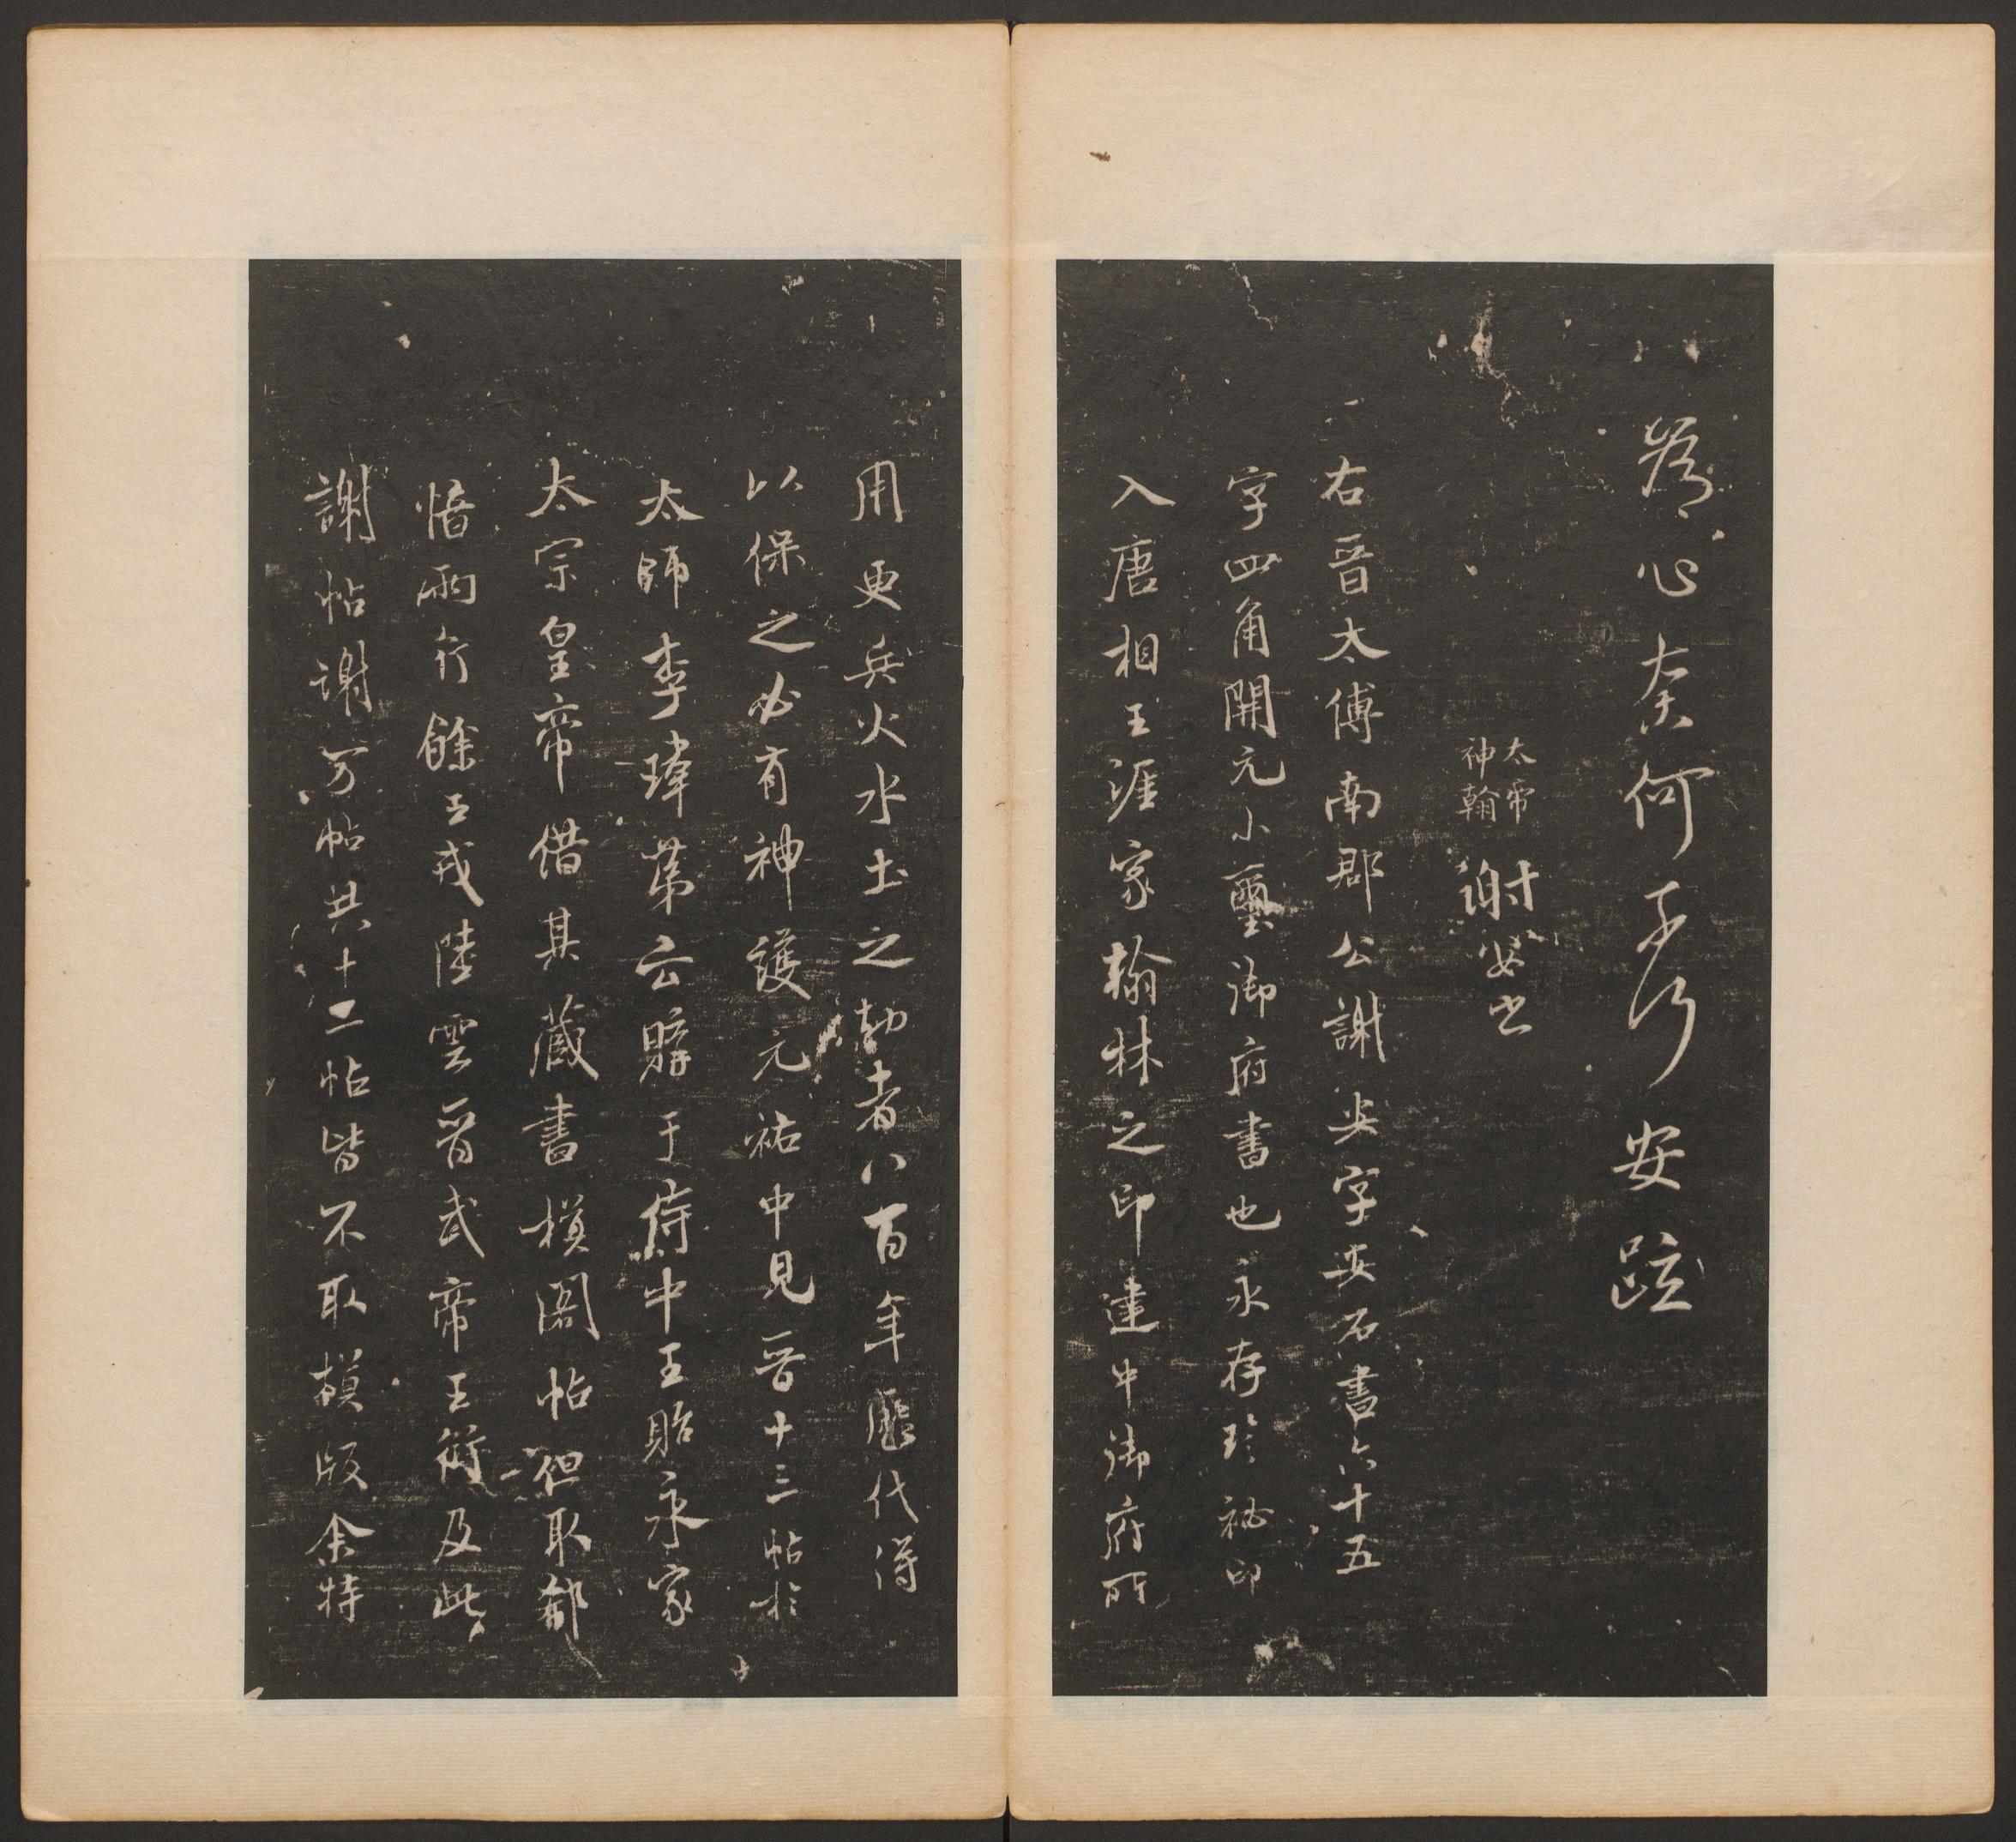 為心奈何奈何安疏
太帝
神翰
謝安書
右晉太傅南郡公謝安字安石書六十五
字四角開元小璽御府書也永存珍祕印
入唐相王涯家翰林之印建中御府所
用更兵火水土之劫者八百年歷代得
以保之必有神護元祐中見晉十三帖於
太師李瑋第云購于侍中王貽永家
太宗皇帝借其藏書模閣帖但取郗
愔兩行餘王戎陸雲晉武帝王衍及此
謝帖謝万帖共十二帖皆不取模版余特